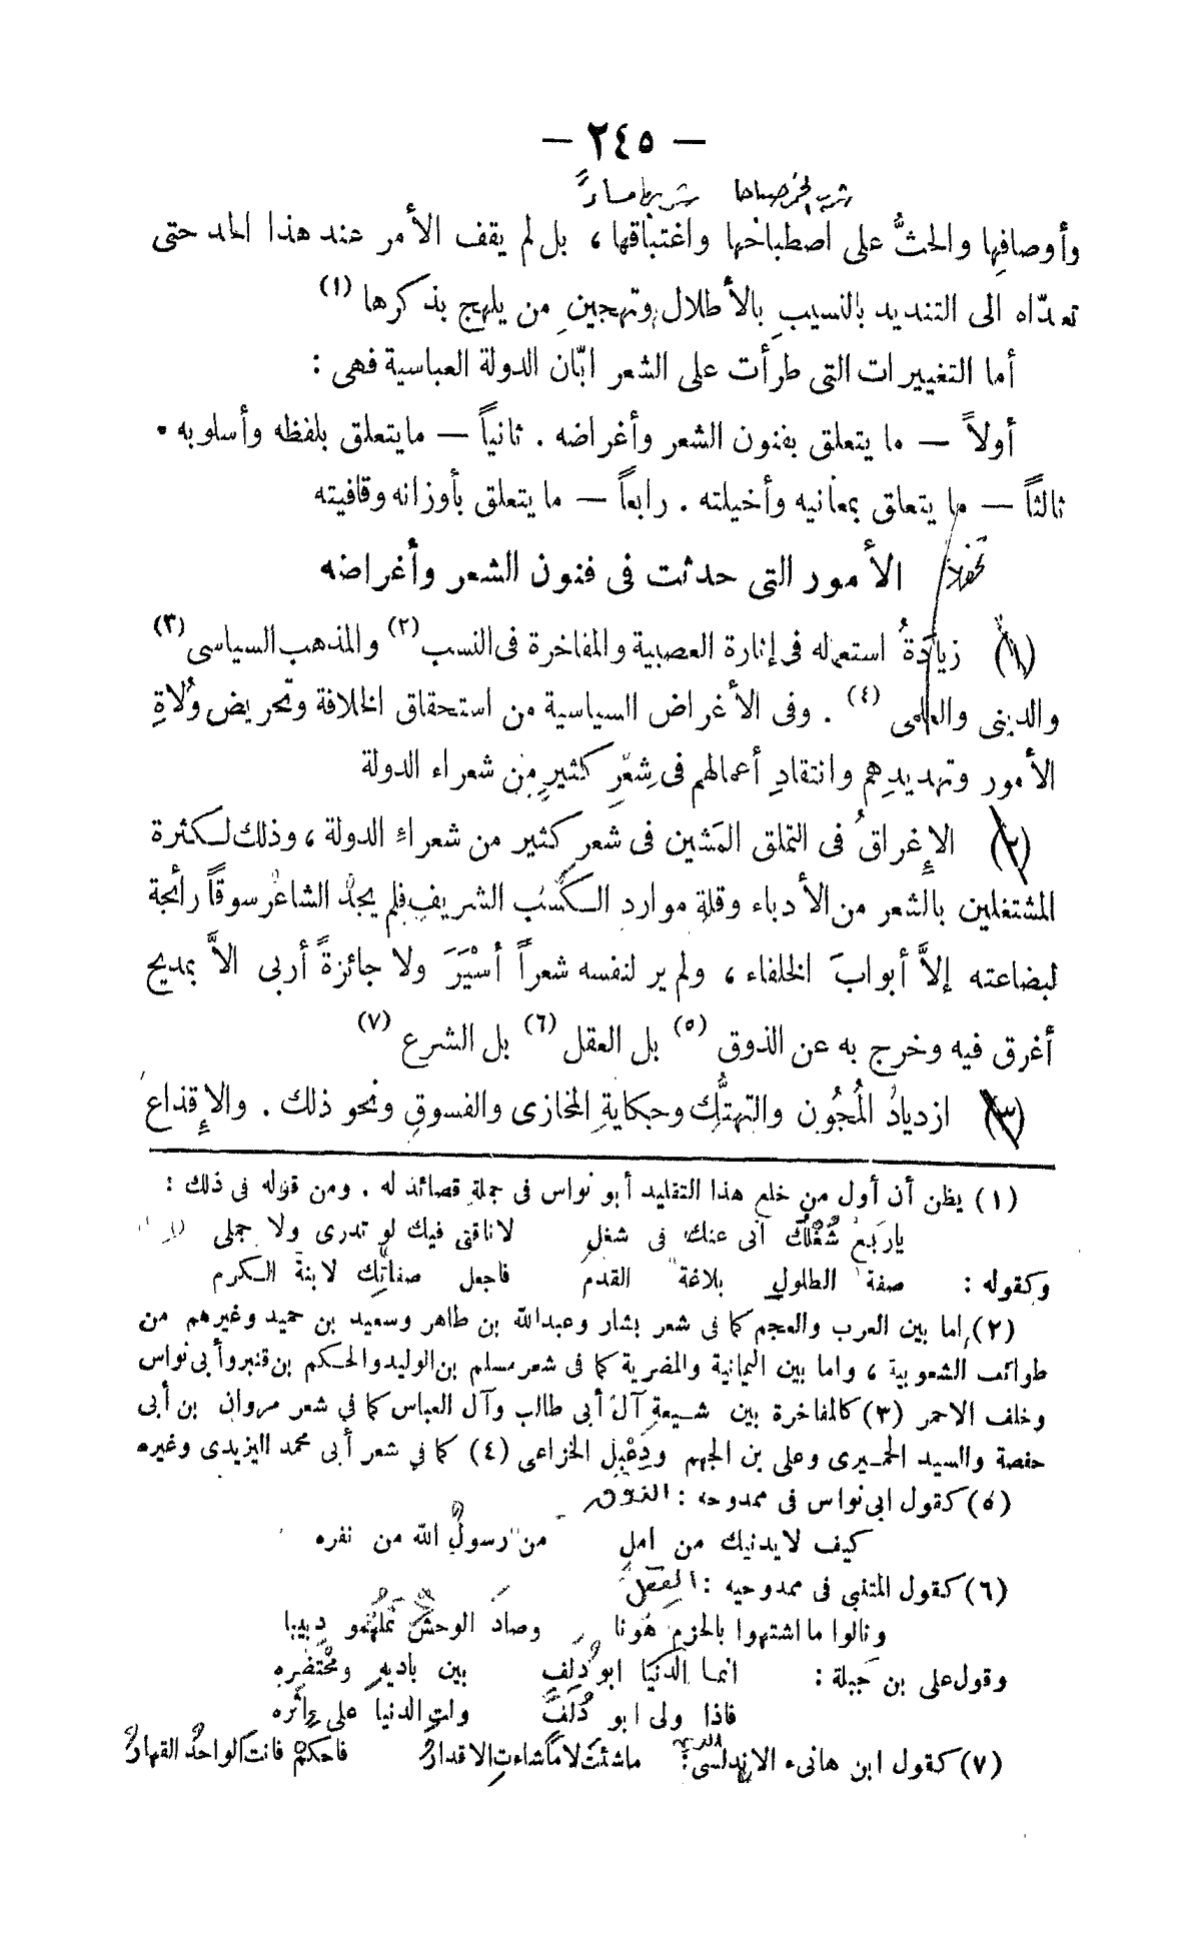 — ٢٤٥ —
شرب الخمر صباحا شربها مساءً
وأوصافِها والحثُّ على اصطباحها واغتباقها ، بل لم يقف الأمر عند هذا الحد حتى
تعدّاه الى التنديد بالنسيبِ بالأطلال وتهجينِ من يلهج بذكرها (١)
أما التغييرات التى طرأت على الشعر ابّان الدولة العباسية فهى :
أولاً — ما يتعلق بفنون الشعر وأغراضه . ثانياً — مايتعلق بلفظه وأسلوبه .
ثالثاً — ما يتعلق بمعانيه وأخيلته . رابعاً — ما يتعلق بأوزانه وقافيته
الأمور التى حدثت فى فنون الشعر وأغراضه
(١) زيادةُ استعماله فى إثارة العصبية والمفاخرة فى النسب (٢) والمذهب السياسى (٣)
والدينى والعلمى (٤) . وفى الأغراض السياسية من استحقاق الخلافة وتحريض وُلاةِ
الأمور وتهديدِهم وانتقادِ أعمالهم فى شِعْرِ كثيرٍ من شعراء الدولة
(٢) الإغراقُ فى التملق المَشين فى شعرِ كثير من شعراءِ الدولة ، وذلك لكثرة
المشتغلين بالشعر من الأدباء وقلةِ موارد الكسْبِ الشريفِ فلم يجدْ الشاعرُ سوقاً رائجة
لبضاعته إلاَّ أبوابَ الخلفاء ، ولم ير لنفسه شعراً أسْيَرَ ولا جائزةً أربى الاَّ بمديح
أغرق فيه وخرج به عن الذوق (٥) بل العقل (٦) بل الشرع (٧)
(٣) ازديادُ المُجُونِ والتهتُّكِ وحكايةِ المخازى والفسوقِ ونحو ذلك . والإقذاع
(١) يظن أن أول من خلع هذا التقليد أبو نواس فى جملة قصائد له . ومن قوله فى ذلك :
ياربعُ شُغْلُكَ انى عنك فى شغل لاناقتى فيك لو تدرى ولا جملى
وكقوله : صفة الطلول بلاغة القدم فاجعل صفاتِك لابنة الكرم
(٢) اما بين العرب والعجم كما فى شعر بشار وعبدالله بن طاهر وسعيد بن حميد وغيرهم من
طوائف الشعوبية ، واما بين اليمانية والمضرية كما فى شعر مسلم بن الوليد والحكم بن قنبر وأبى نواس
وخلف الاحمر (٣) كالمفاخرة بين شيعةِ آل أبى طالب وآل العباس كما في شعر مروان بن أبى
حفصة والسيد الحميرى وعلى بن الجهم ودِعْبِل الخزاعى (٤) كما في شعر أبى محمد اليزيدى وغيره
(٥) كقول ابى نواس فى ممدوحه : الذوق
كيف لا يدنيك من امل من رسولُ الله من نفره
(٦) كقول المتنبى فى ممدوحيه : العقل
ونالوا ما اشتهوا بالحزم هونا وصادَ الوحشَ نملُهُمو دبيبا
وقول على بن جَبلة : انما الدنيا ابو دُلفٍ بين باديهِ ومحْتضَره
فاذا ولى ابو دُلَفٍ ولت الدنيا على إِثره
(٧) كقول ابن هانىء الاندلسى : ماشئتَ لا ماشاءتِ الاقدارُ فاحكمْ فانت الواحدُ القهارُ